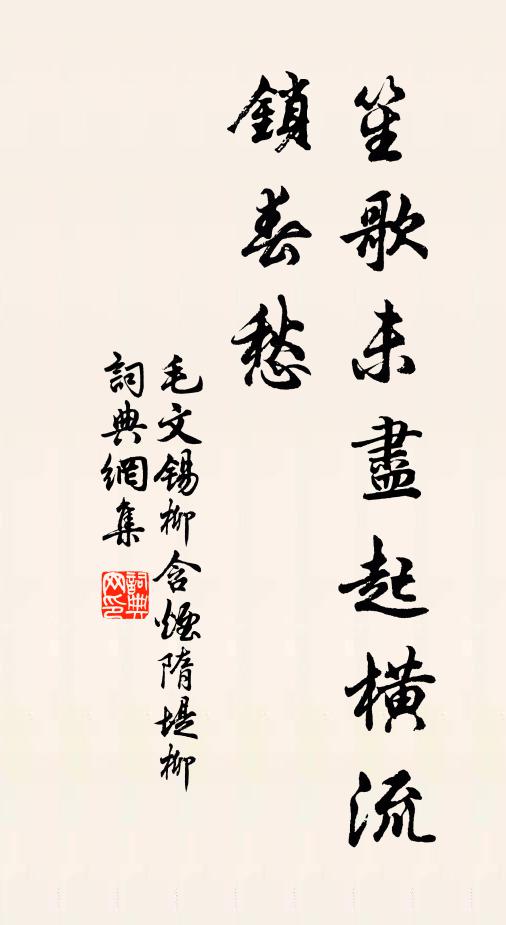 笙歌未盡起橫流
鎖春愁
毛文錫柳含煙隋堤柳
詞典網集
詞典網印